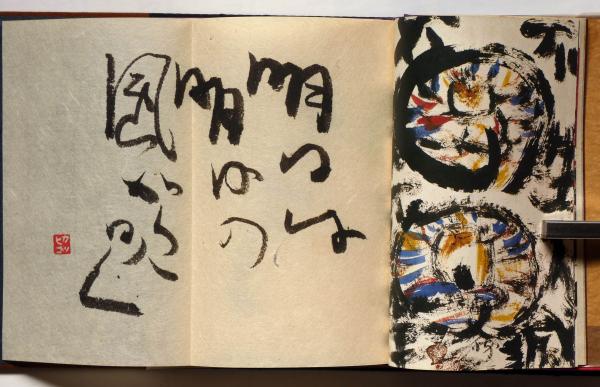 明日は
明日の
風が吹く
カツ
ヒコ